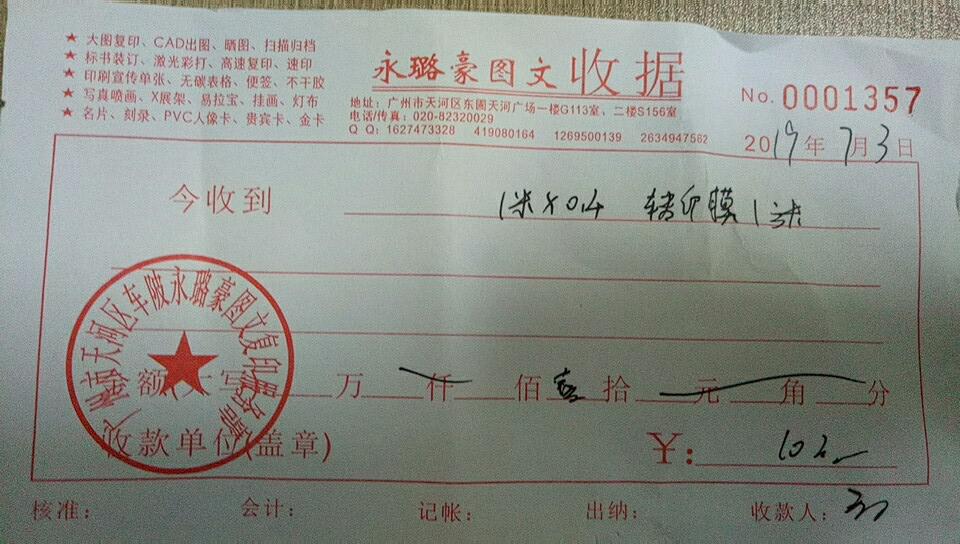 ★ 大图复印、CAD出图、晒图、扫描归档
★ 标书装订、激光彩打、高速复印、速印
★ 印刷宣传单张、无碳表格、便签、不干胶
★ 写真喷画、X展架、易拉宝、挂画、灯布
★ 名片、刻录、PVC人像卡、贵宾卡、金卡
永璐豪图文收据
地址：广州市天河区东圃天河广场一楼G113室、二楼S156室
电话/传真：020-82320029
QQ：1627473328 419080164 1269500139 2634947562
No. 0001357
2019年7月3日
今收到 1米×04 转印膜1张
广州市天河区车陂永璐豪图文复印服务部
金额大写 万 仟 佰 壹拾 元 角 分
收款单位(盖章) ￥：10元
核准： 会计： 记帐： 出纳： 收款人：